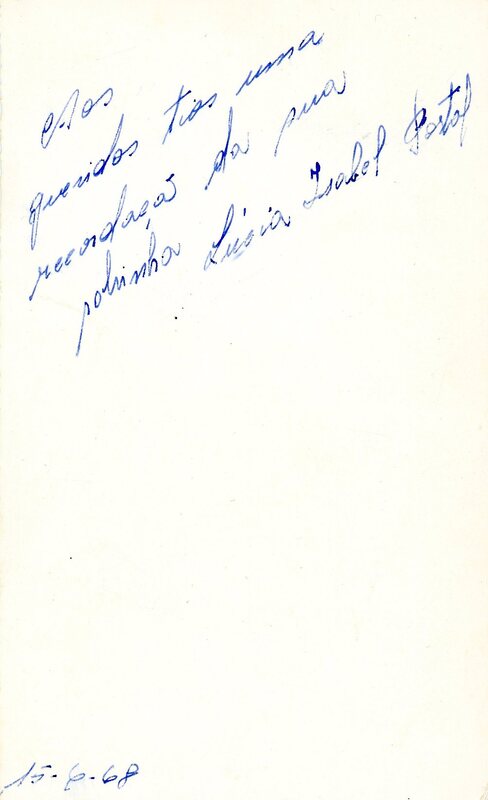 Aos
queridos tios uma
recordaçã da sua
sobrinha Lúcia Isabel Portal
15-6-68